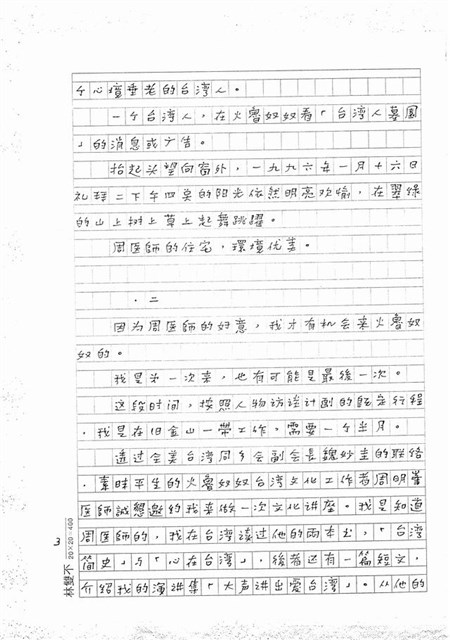 个心境垂老的台湾人。
一个台湾人，在火魯奴奴看「台湾人墓園
」的消息或广告。
抬起头望向窗外，一九九六年一月十六日
礼拜二下午四点的阳光依然明亮欢愉，在翠绿
的山上树上草上起舞跳躍。
周医師的住宅，環境优美。
．二
因为周医師的好意，我才有机会来火魯奴
奴的。
我是头一次来，也有可能是最後一次。
这段时间，按照人物访谈计劃的既定行程
，我是在旧金山一带工作，需要一个半月。
透过全美台湾同乡会副会長魏妙圭的联络
，素昧平生的火魯奴奴台湾文化工作者周明峯
医師誠懇邀約我来做一次文化讲座。我是知道
周医師的，我在台湾读过他的两本书，「台湾
简史」与「心在台湾」，後者还有一篇短文，
介绍我的演讲集「大声讲出爱台湾」。从他的
3
林雙不 20×20=400